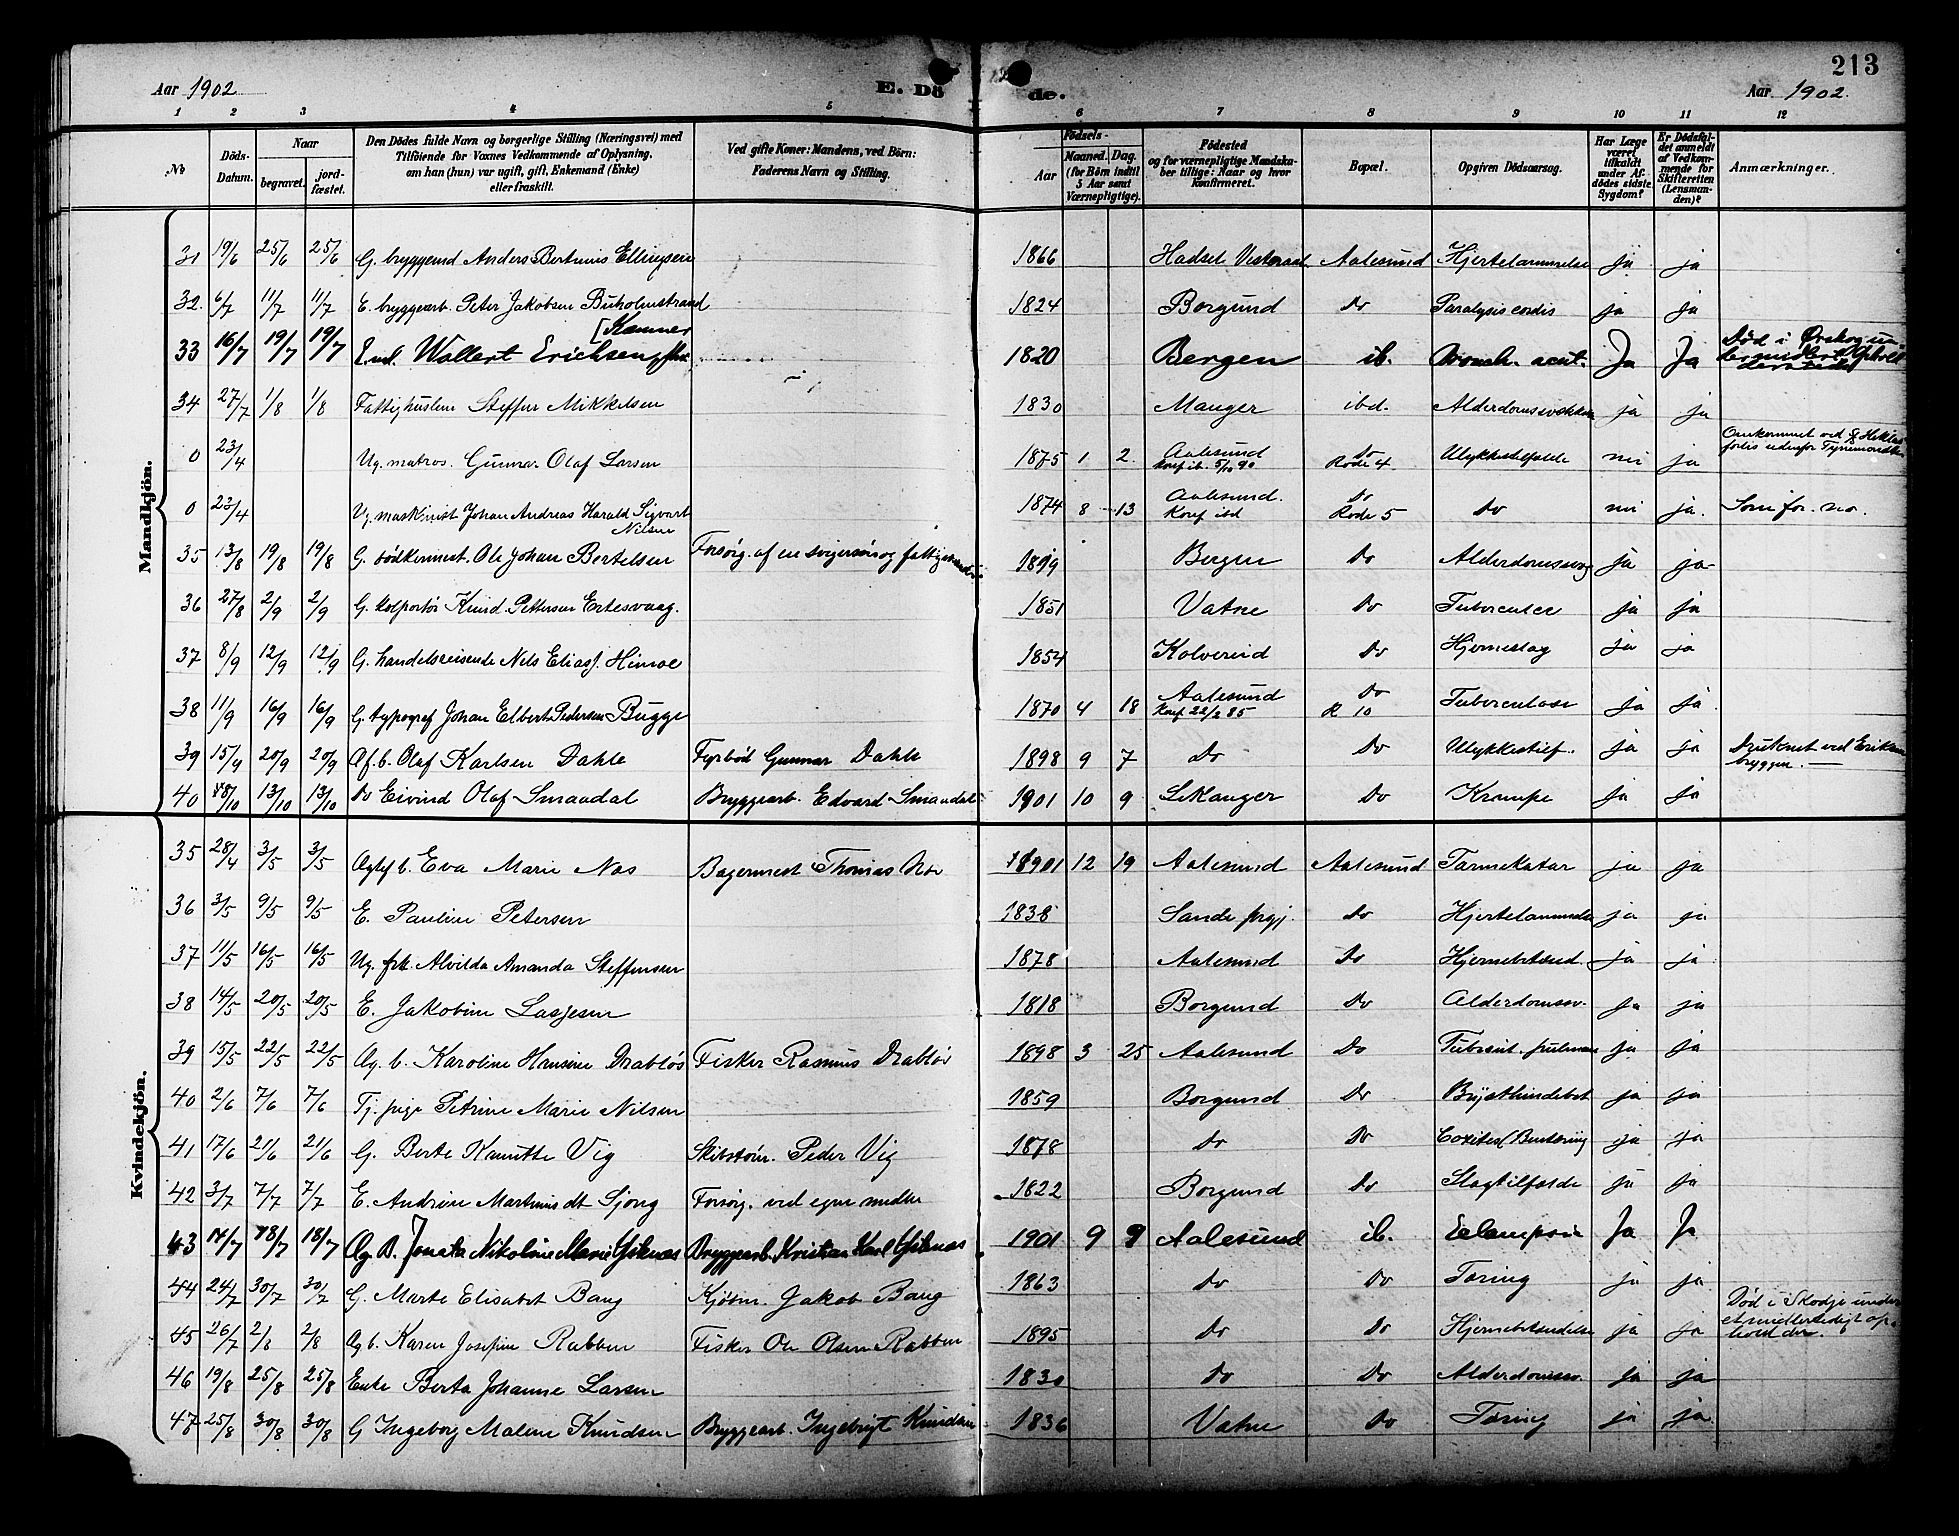 213
Aar 1902 E. Dö de. Aar 1902.
1 2 3 4 5 6 7 8 9 10 11 12
No
Döds-Datum.
Naar
begravet.
jord-fæstet.
Den Dödes fulde Navn og borgerlige Stilling (Næringsvei) med
Tilföiende for Voxnes Vedkommende af Oplysning,
om han (hun) var ugift, gift, Enkemand (Enke)
eller fraskilt.
Ved gifte Koner: Mandens, ved Börn:
Faderens Navn og Stilling.
Födsels-
Aar
Maaned. Dag.
(for Börn indtil
5 Aar samt
Værnepligtige).
Födested
og for værnepligtige Mandska-
ber tillige: Naar og hvor
konfirmeret.
Bopæl.
Opgiven Dödsaarsag.
Har Læge
været
tilkaldt
under Af-
dödes sidste
Sygdom?
Er Dödsfal-
det anmeldt
af Vedkom-
mende for
Skifteretten
(Lensman-
den)?
Anmærkninger.
Mandkjön.
31 19/6 25/6 25/6 G. Anders Bertinius Ellingsen 1866 Hadsel Aalesund Hjertelammelse ja ja
32. 6/7 11/7 11/7 E. bryggearb. Peter Jakobsen Buholmstrand 1824 Borgund Do Paralysis cordis ja ja
33 16/7 19/7 19/7 Wollert Erichsen [Kæmner 1820 Bergen ib. Bronch. acut. Ja Ja Død i Ørskog
34 27/7 1/8 1/8 Fattighuslem Steffen Mikkelsen 1830 Manger ibd. ja ja
0 23/4 Ug. matros. Gunnar Olaf Larsen 1875 1 2. Aalesund Konf. ib. 5/10 90 Do Rode 4 Ulykkestilfælde nei ja Omkommet ved
0 23/4 Ug. maskinist Johan Andreas Harald Sigvart Nilsen 1874 8 13 Aalesund. Konf ibd Do Rode 5 Do nei ja. Som for. no.
35 13/8 19/8 19/8 G. bødkermest. Ole Johan Bertelsen Forsørg. af en svigersøn og Bergen Do Alderdomssvag ja ja
36 27/8 2/9 2/9 G. kolportør Knud Pettersen Ertesvaag. 1851 Vatne Do ja ja
37 8/9 12/9 12/9 G. handelsreisende Nels Eliass. Himoe 1854 Kolvereid Do Hjerneslag ja ja
38 11/9 16/9 16/9 G. typograf Johan Elbert Pedersen Bugge 1870 4 18 Aalesund Konf 22/2 85 Do R 10 Tuberculose ja ja
39 15/9 20/9 20/9 Æf. b. Olaf Karlsen Dahle Fyrbød. Gunnar Dahle 1898 9 7 Do Do Ulykkestilf. ja ja Druknet ved
40 8/10 13/10 13/10 Do Eivind Olaf Smaadal Bryggearb. Edvard Smaadal 1901 10 9 Selanger Do Krampe ja ja
Kvindekjön.
35 28/4 3/5 3/5 Eva Marie Næs Bagermest Thomas 1901 12 19 Aalesund Aalesund Tarmekatar ja ja
36 3/5 9/5 9/5 E. Pauline Petersen 1838 Sande Do Hjertelammelse ja ja
37 11/5 16/5 16/5 Ug. frk. Alvilda Amanda Steffensen 1878 Aalesund Do ja ja
38 14/5 20/5 20/5 E. Jakobine Lasjesen 1818 Borgund Do Alderdomssv. ja ja
39 15/5 22/5 22/5 Æg. b. Karoline Hansine Drabløs Fisker Rasmus Drabløs 1898 3 25 Aalesund Do ja ja
40 2/6 7/6 7/6 Tj. pige Petrine Marie Nilsen 1859 Borgund Do ja ja
41 17/6 21/6 21/6 G. Berte Knutte Vig Skibstøm. Peder Vig 1878 Do Do ja ja
42 3/7 7/7 7/7 E. Andrine Martinusdt Sjong Forsørg. ved egne midler 1822 Borgund Do Slagtilfælde ja ja
43 14/7 18/7 18/7 Æg. B. Jonata Nikoline Marie Giknæs Bryggearb. Kristian Karl Giknæs 1901 9 9 Aalesund ib. Eclampsia Ja Ja
44 24/7 30/7 30/7 G. Marte Elisabet Bang Kjøbm. Jakob Bang 1863 Do Do Tæring ja ja
45 26/7 2/8 2/8 Æg b. Karen Josefine Rabben Fisker Ole Olsen Rabben 1895 Do Do Hjernebetændelse ja ja Død i Skodje under et midlertidigt op-hold der.
46 19/8 25/8 25/8 Enke Berta Johanne Larsen 1830 Do Do Alderdomssv. ja ja
47 25/8 30/8 30/8 G Ingeborg Malene Knudsen Bryggearb. Ingebrigt Knudsen 1836 Vatne Do Tæring ja ja